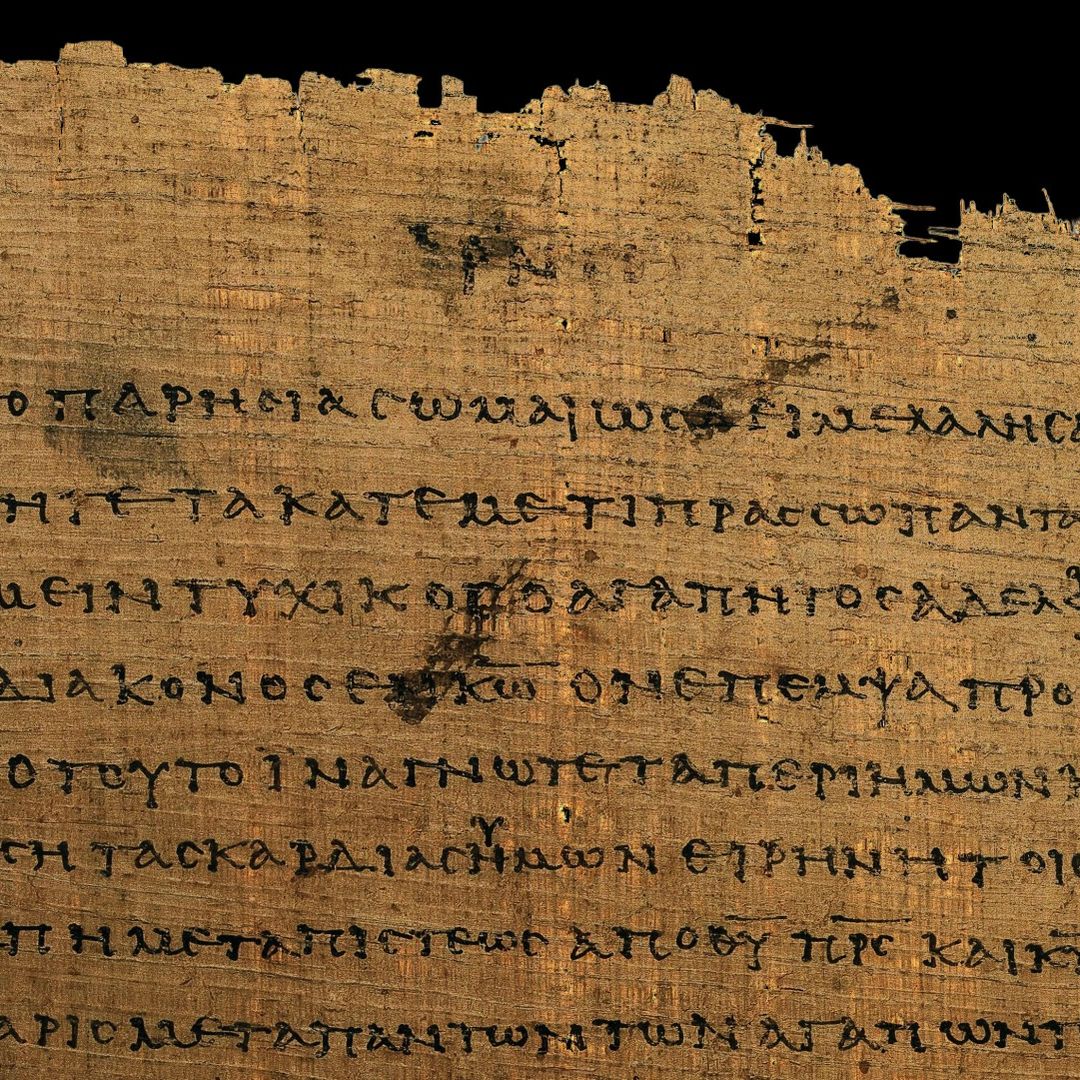 ΡΝ
ΟΠΑΡΗϹΙΑϹΩΜΑΙΩϹΔΕΙΜΕΛΑΛΗϹΑ
ΗΤΕΤΑΚΑΤΕΜΕΤΙΠΡΑϹϹΩΠΑΝΤΑ
ΜΕΙΝΤΥΧΙΚΟϹΟΑΓΑΠΗΤΟϹΑΔΕΛΦ
ΔΙΑΚΟΝΟϹΕΝΚ̅Ω̅ΟΝΕΠΕΜΨΑΠΡΟ
ΟΤΟΥΤΟΪΝΑΓΝΩΤΕΤΑΠΕΡΙΗΜΩΝΚ
Υ
ϹΗΤΑϹΚΑΡΔΙΑϹΗΜΩΝΕΙΡΗΝΗΤΟΙϹ
ΠΗΜΕΤΑΠΙϹΤΕΩϹΑΠΟΘ̅Υ̅Π̅Ρ̅Ϲ̅ΚΑΙΚ̅Υ̅
ΑΡΙϹΜΕΤΑΠΑΝΤΩΝΤΩΝΑΓΑΠΩΝΤ